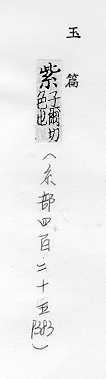 玉篇
紫子爾切色也
(糸部四百二十五1383)